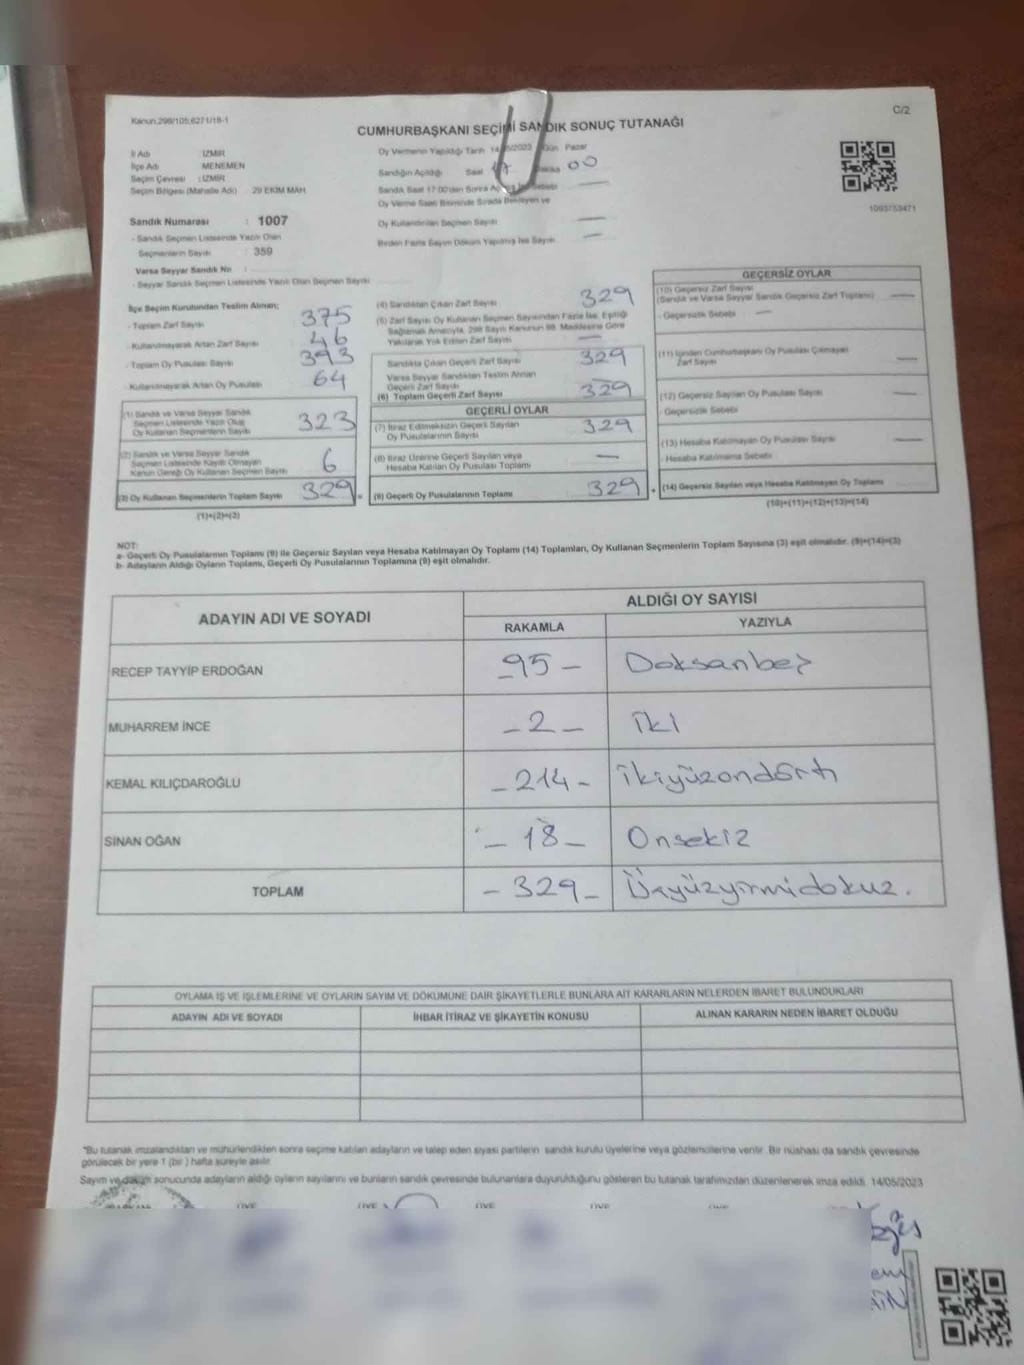 Kanun:298/105;6271/18-1
C/2
CUMHURBAŞKANI SEÇİMİ SANDIK SONUÇ TUTANAĞI
İl Adı : İZMİR
İlçe Adı : MENEMEN
Seçim Çevresi : İZMİR
Seçim Bölgesi (Mahalle Adı) : 29 EKİM MAH.
Sandık Numarası : 1007
- Sandık Seçmen Listesinde Yazılı Olan
Seçmenlerin Sayısı : 359
Varsa Seyyar Sandık No :
- Seyyar Sandık Seçmen Listesinde Yazılı Olan Seçmen Sayısı
Oy Vermenin Yapıldığı Tarih 14/5/2023 Gün Pazar
Sandığın Açıldığı Saat 17 Dakika 00
Sandık Saat 17:00'den Sonra Sebebi —
Oy Verme Saati Bitiminde Sırada Bekleyen ve
Oy Kullandırılan Seçmen Sayısı —
Birden Fazla Sayım Döküm Yapılmış İse Sayısı —
1093753471
İlçe Seçim Kurulundan Teslim Alınan;
- Toplam Zarf Sayısı 375
- Kullanılmayarak Artan Zarf Sayısı 46
- Toplam Oy Pusulası Sayısı 393
- Kullanılmayarak Artan Oy Pusulası 64
(1) Sandık ve Varsa Seyyar Sandık
Seçmen Listesinde Yazılı Olup
Oy Kullanan Seçmenlerin Sayısı 323
(2) Sandık ve Varsa Seyyar Sandık
Seçmen Listesinde Kayıtlı Olmayan
Kanun Gereği Oy Kullanan Seçmen Sayısı 6
(3) Oy Kullanan Seçmenlerin Toplam Sayısı 329 =
(1)+(2)=(3)
(4) Sandıktan Çıkan Zarf Sayısı 329
(5) Zarf Sayısı Oy Kullanan Seçmen Sayısından Fazla İse, Eşitliği
Sağlamak Amacıyla, 298 Sayılı Kanunun 98. Maddesine Göre
Yakılarak Yok Edilen Zarf Sayısı —
Sandıkta Çıkan Geçerli Zarf Sayısı 329
Varsa Seyyar Sandıktan Teslim Alınan
Geçerli Zarf Sayısı —
(6) Toplam Geçerli Zarf Sayısı 329
GEÇERLİ OYLAR
(7) İtiraz Edilmeksizin Geçerli Sayılan
Oy Pusulalarının Sayısı 329
(8) İtiraz Üzerine Geçerli Sayılan veya
Hesaba Katılan Oy Pusulası Toplamı —
(9) Geçerli Oy Pusulalarının Toplamı 329 +
GEÇERSİZ OYLAR
(10) Geçersiz Zarf Sayısı
(Sandık ve Varsa Seyyar Sandık Geçersiz Zarf Toplamı) —
- Geçersizlik Sebebi —
(11) İçinden Cumhurbaşkanı Oy Pusulası Çıkmayan
Zarf Sayısı —
(12) Geçersiz Sayılan Oy Pusulası Sayısı —
- Geçersizlik Sebebi
(13) Hesaba Katılmayan Oy Pusulası Sayısı —
- Hesaba Katılmama Sebebi
(14) Geçersiz Sayılan veya Hesaba Katılmayan Oy Toplamı
(10)+(11)+(12)+(13)=(14)
NOT:
a- Geçerli Oy Pusulalarının Toplamı (9) ile Geçersiz Sayılan veya Hesaba Katılmayan Oy Toplamı (14) Toplamları, Oy Kullanan Seçmenlerin Toplam Sayısına (3) eşit olmalıdır. (9)+(14)=(3)
b- Adayların Aldığı Oyların Toplamı, Geçerli Oy Pusulalarının Toplamına (9) eşit olmalıdır.
ADAYIN ADI VE SOYADI
ALDIĞI OY SAYISI
RAKAMLA YAZIYLA
RECEP TAYYİP ERDOĞAN -95- Doksanbeş
MUHARREM İNCE -2- İki
KEMAL KILIÇDAROĞLU -214- İkiyüzondört
SİNAN OĞAN -18- Onsekiz
TOPLAM -329- Üçyüzyirmidokuz.
OYLAMA İŞ VE İŞLEMLERİNE VE OYLARIN SAYIM VE DÖKÜMÜNE DAİR ŞİKAYETLERLE BUNLARA AİT KARARLARIN NELERDEN İBARET BULUNDUKLARI
ADAYIN ADI VE SOYADI İHBAR İTİRAZ VE ŞİKAYETİN KONUSU ALINAN KARARIN NEDEN İBARET OLDUĞU
*Bu tutanak imzalandıktan ve mühürlendikten sonra seçime katılan adayların ve talep eden siyasi partilerin sandık kurulu üyelerine veya gözlemcilerine verilir. Bir nüshası da sandık çevresinde
görülecek bir yere 1 (bir) hafta süreyle asılır.
Sayım ve döküm sonucunda adayların aldığı oyların sayılarını ve bunların sandık çevresinde bulunanlara duyurulduğunu gösteren bu tutanak tarafımızdan düzenlenerek imza edildi. 14/05/2023
ÜYE ÜYE ÜYE ÜYE